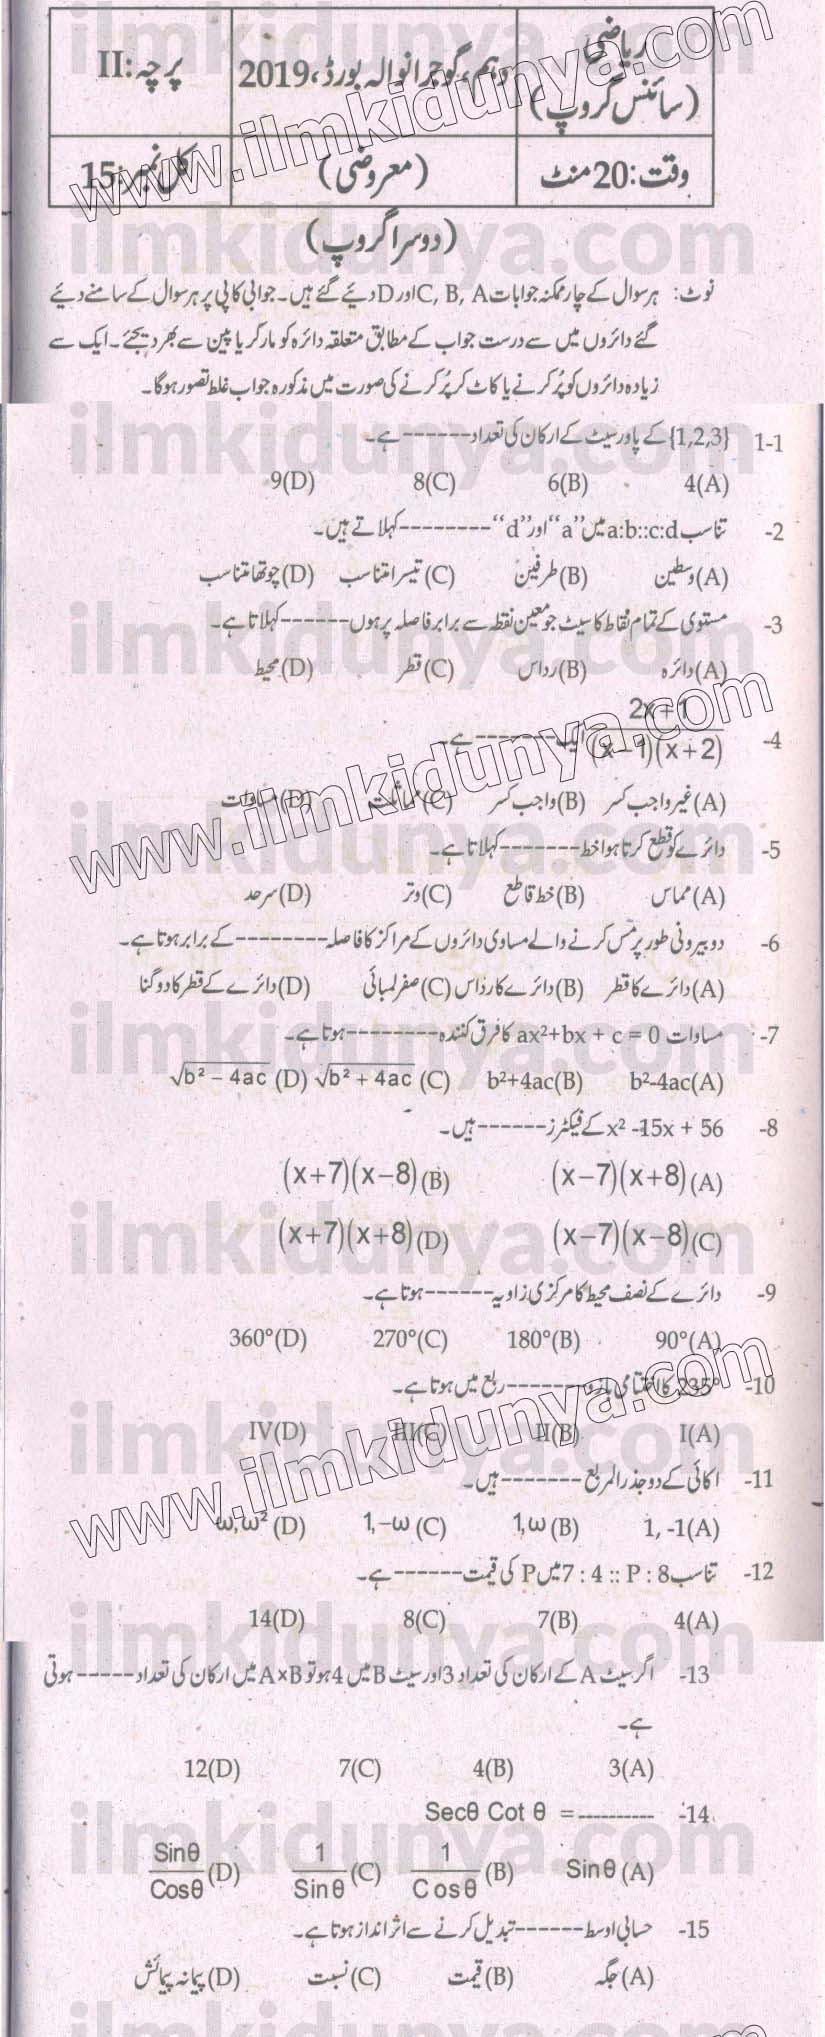 ریاضی (سائنس گروپ) دہم، گوجرانوالہ بورڈ، 2019 پرچہ: II
وقت: 20 منٹ (معروضی) کل نمبر: 15
(دوسرا گروپ)
نوٹ: ہر سوال کے چار ممکنہ جوابات C, B, A اور D دیئے گئے ہیں۔ جوابی کاپی پر ہر سوال کے سامنے دیئے
گئے دائروں میں سے درست جواب کے مطابق متعلقہ دائرہ کو مارکر یا پین سے بھر دیجئے۔ ایک سے
زیادہ دائروں کو پُر کرنے یا کاٹ کر پُر کرنے کی صورت میں مذکورہ جواب غلط تصور ہوگا۔
1-1 {1,2,3} کے پاور سیٹ کے ارکان کی تعداد ------ ہے۔
(A) 4 (B) 6 (C) 8 (D) 9
2- تناسب a:b::c:d میں "a" اور "d" -------- کہلاتے ہیں۔
(A) وسطین (B) طرفین (C) تیسرا متناسب (D) چوتھا متناسب
3- مستوی کے تمام نقاط کا سیٹ جو معین نقطہ سے برابر فاصلہ پر ہوں ------ کہلاتا ہے۔
(A) دائرہ (B) رداس (C) قطر (D) محیط
4- (2x+1)/((x-1)(x+2)) ایک ------- ہے۔
(A) غیر واجب کسر (B) واجب کسر (C) مماثلت (D) مساوات
5- دائرے کو قطع کرتا ہوا خط ------- کہلاتا ہے۔
(A) مماس (B) خط قاطع (C) وتر (D) سرحد
6- دو بیرونی طور پر مَس کرنے والے مساوی دائروں کے مراکز کا فاصلہ -------- کے برابر ہوتا ہے۔
(A) دائرے کا قطر (B) دائرے کا رداس (C) صفر لمبائی (D) دائرے کے قطر کا دوگنا
7- مساوات ax²+bx + c = 0 کا فرق کنندہ -------- ہوتا ہے۔
(A) b²-4ac (B) b²+4ac (C) √(b² + 4ac) (D) √(b² – 4ac)
8- x² -15x + 56 کے فیکٹرز ------ ہیں۔
(A) (x–7)(x+8) (B) (x+7)(x–8)
(C) (x–7)(x–8) (D) (x+7)(x+8)
9- دائرے کے نصف محیط کا مرکزی زاویہ ------ ہوتا ہے۔
(A) 90° (B) 180° (C) 270° (D) 360°
10- 235° کا اختتامی بازو ------- ربع میں ہوتا ہے۔
(A) I (B) II (C) III (D) IV
11- اکائی کے دو جذر المربع ------- ہیں۔
(A) 1, -1 (B) 1,ω (C) 1,–ω (D) ω,ω²
12- تناسب 7 : 4 :: P : 8 میں P کی قیمت ------ ہے۔
(A) 4 (B) 7 (C) 8 (D) 14
13- اگر سیٹ A کے ارکان کی تعداد 3 اور سیٹ B میں 4 ہو تو A×B میں ارکان کی تعداد ----- ہوتی
ہے۔
(A) 3 (B) 4 (C) 7 (D) 12
14- Secθ Cot θ = ----------
(A) Sinθ (B) 1/Cosθ (C) 1/Sinθ (D) Sinθ/Cosθ
15- حسابی اوسط ------ تبدیل کرنے سے اثر انداز ہوتا ہے۔
(A) جگہ (B) قیمت (C) نسبت (D) پیمانہ پیمائش
www.ilmkidunya.com
www.ilmkidunya.com
www.ilmkidunya.com
ilmkidunya.com
ilmkidunya.com
ilmkidunya.com
ilmkidunya.com
ilmkidunya.com
ilmkidunya.com
ilmkidunya.com
ilmkidunya.com
ilmkidunya.com